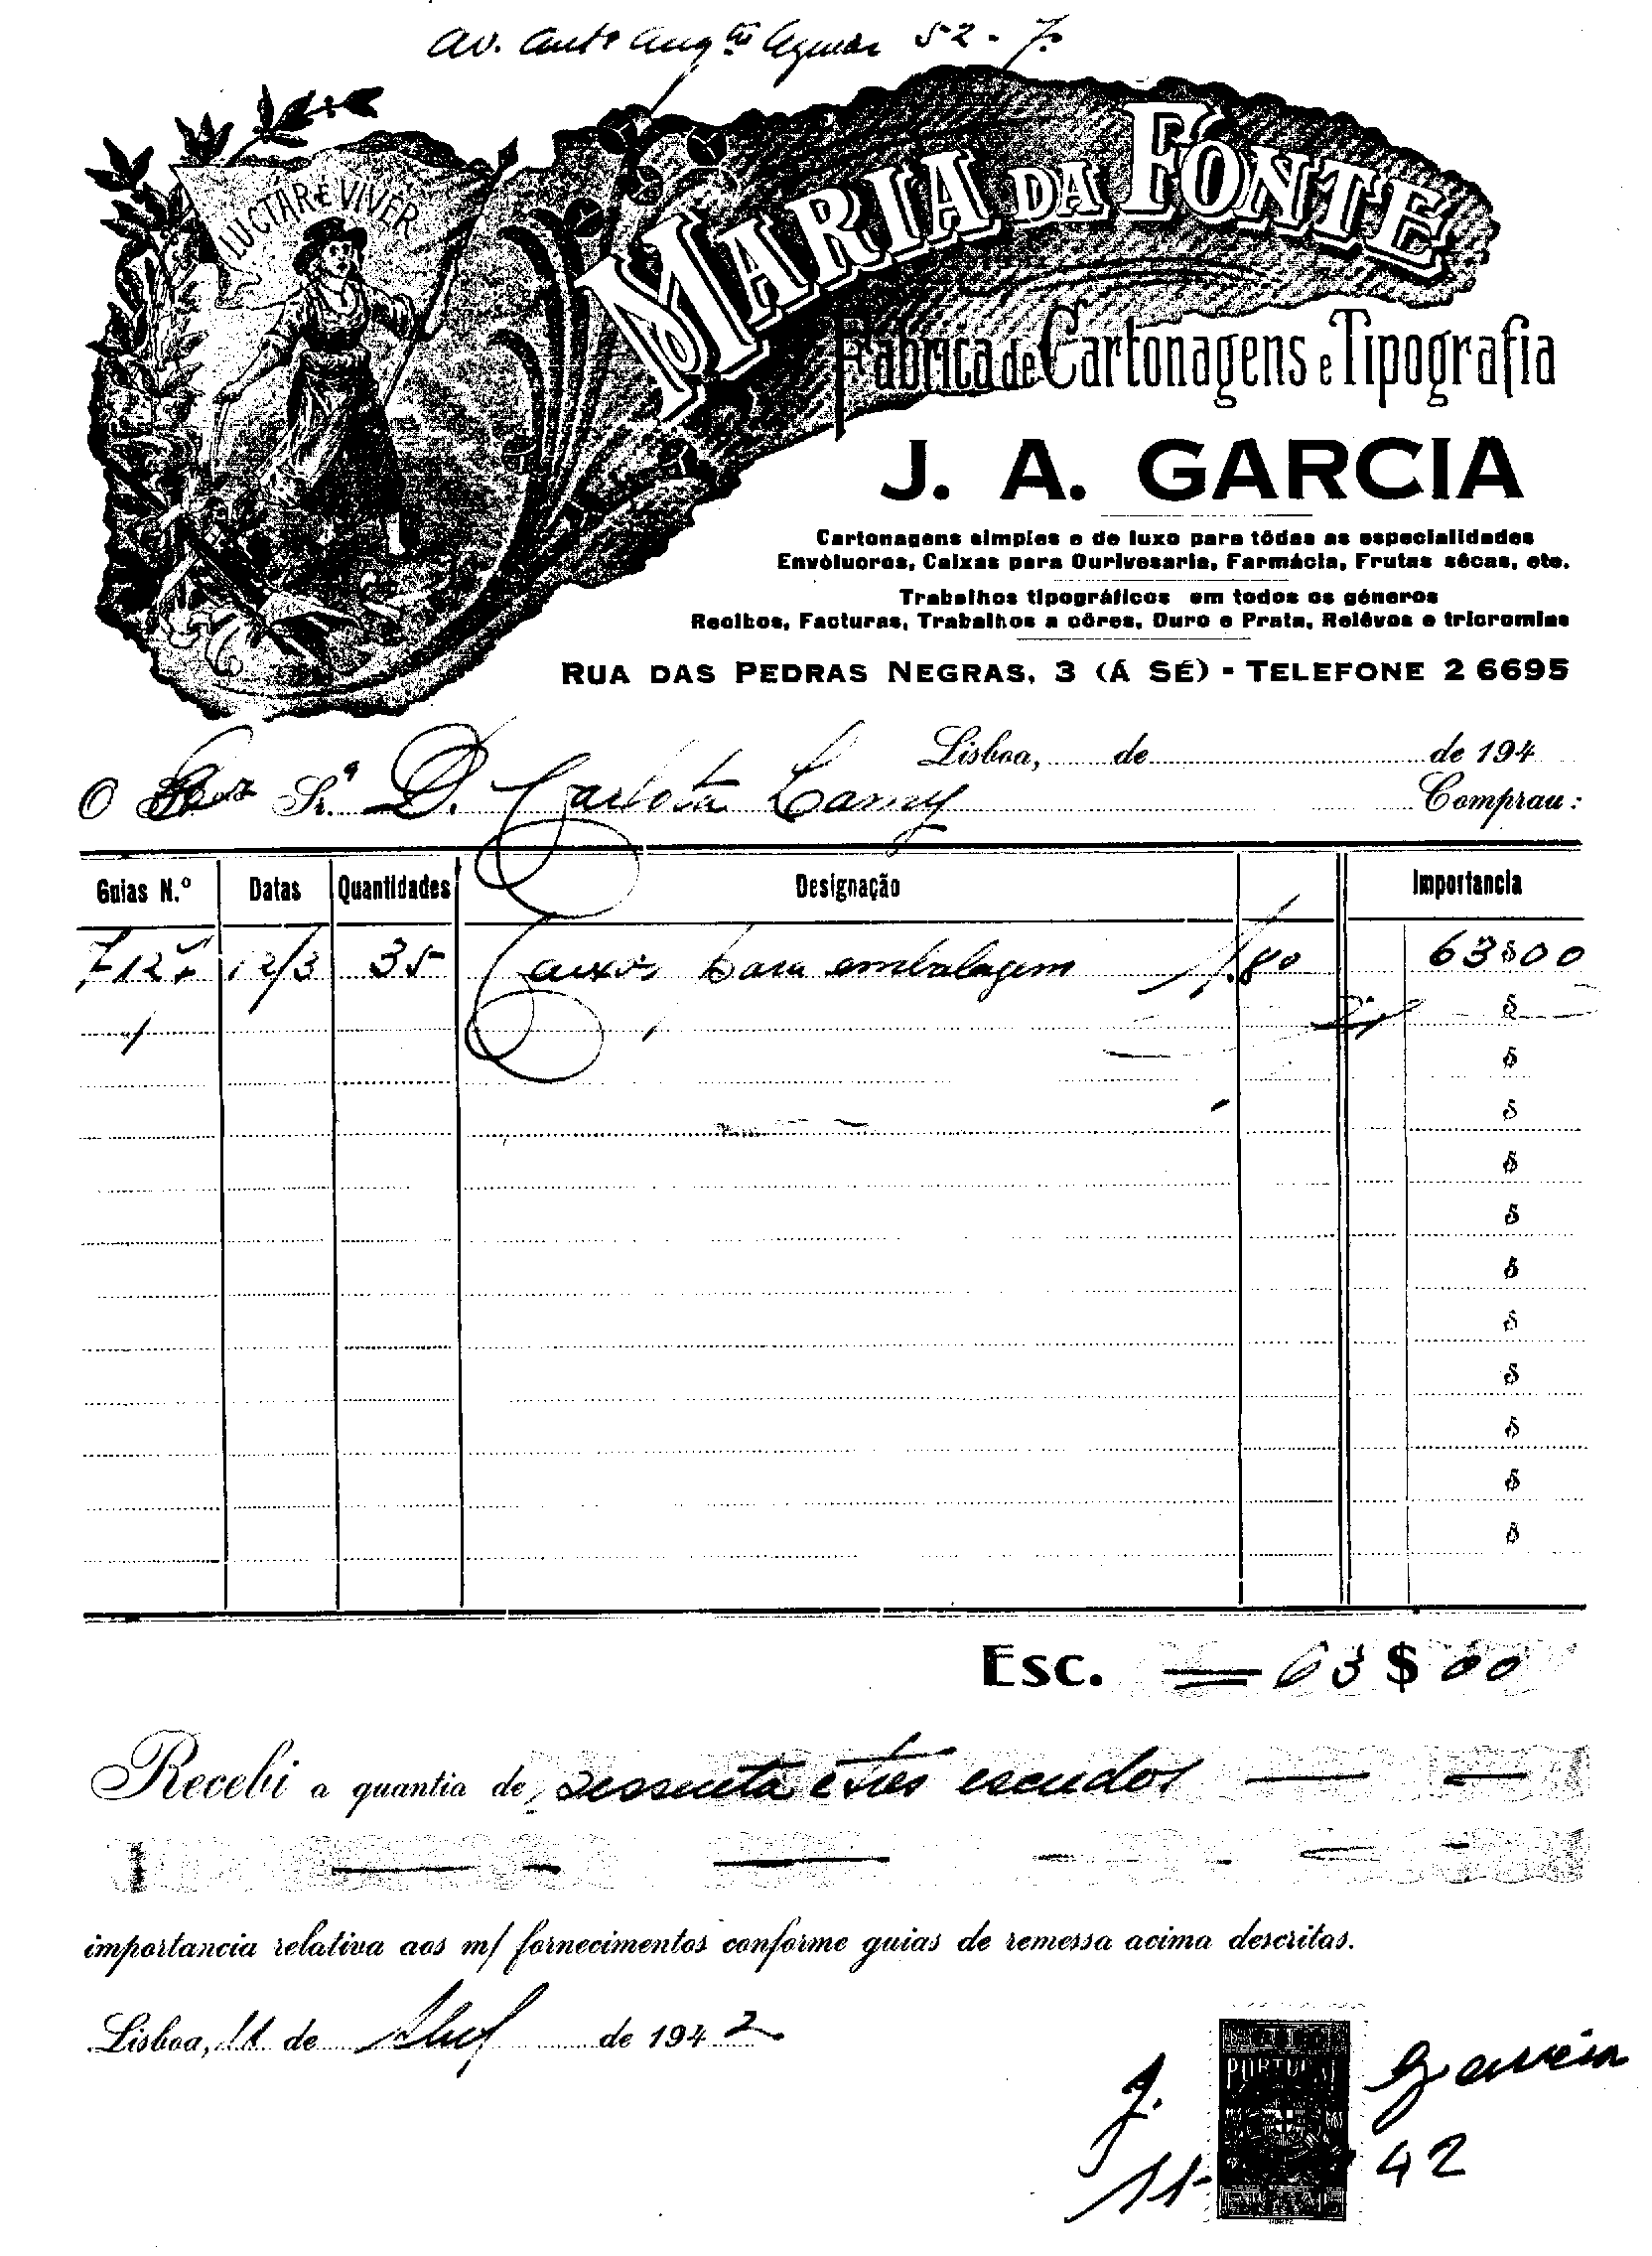 Av. Antº Augtº Aguiar 52 - 7º
LUCTAR É VIVER
MARIA DA FONTE
Fabrica de Cartonagens e Tipografia
J. A. GARCIA
Cartonagens simples e de luxo para tôdas as especialidades
Envólucros, Caixas para Ourivesaria, Farmácia, Frutas sêcas, etc.
Trabalhos tipográficos em todos os géneros
Recibos, Facturas, Trabalhos a côres, Ouro e Prata, Relêvos e tricromias
RUA DAS PEDRAS NEGRAS, 3 (Á SÉ) - TELEFONE 2 6695
Lisboa, de de 194
O Sr.ª D. Carlota Lamy Comprou:
Guias N.º Datas Quantidades Designação Importancia
12/3 35 Caixas para embalagem 1.80 63$00
$
$
$
$
$
$
$
$
$
$
$
Esc. 63$00
Recebi a quantia de sessenta e três escudos
importancia relativa aos m/ fornecimentos conforme guias de remessa acima descritas.
Lisboa, 11 de Abril de 1942
J. Garcia
PORTUGAL
11- 42